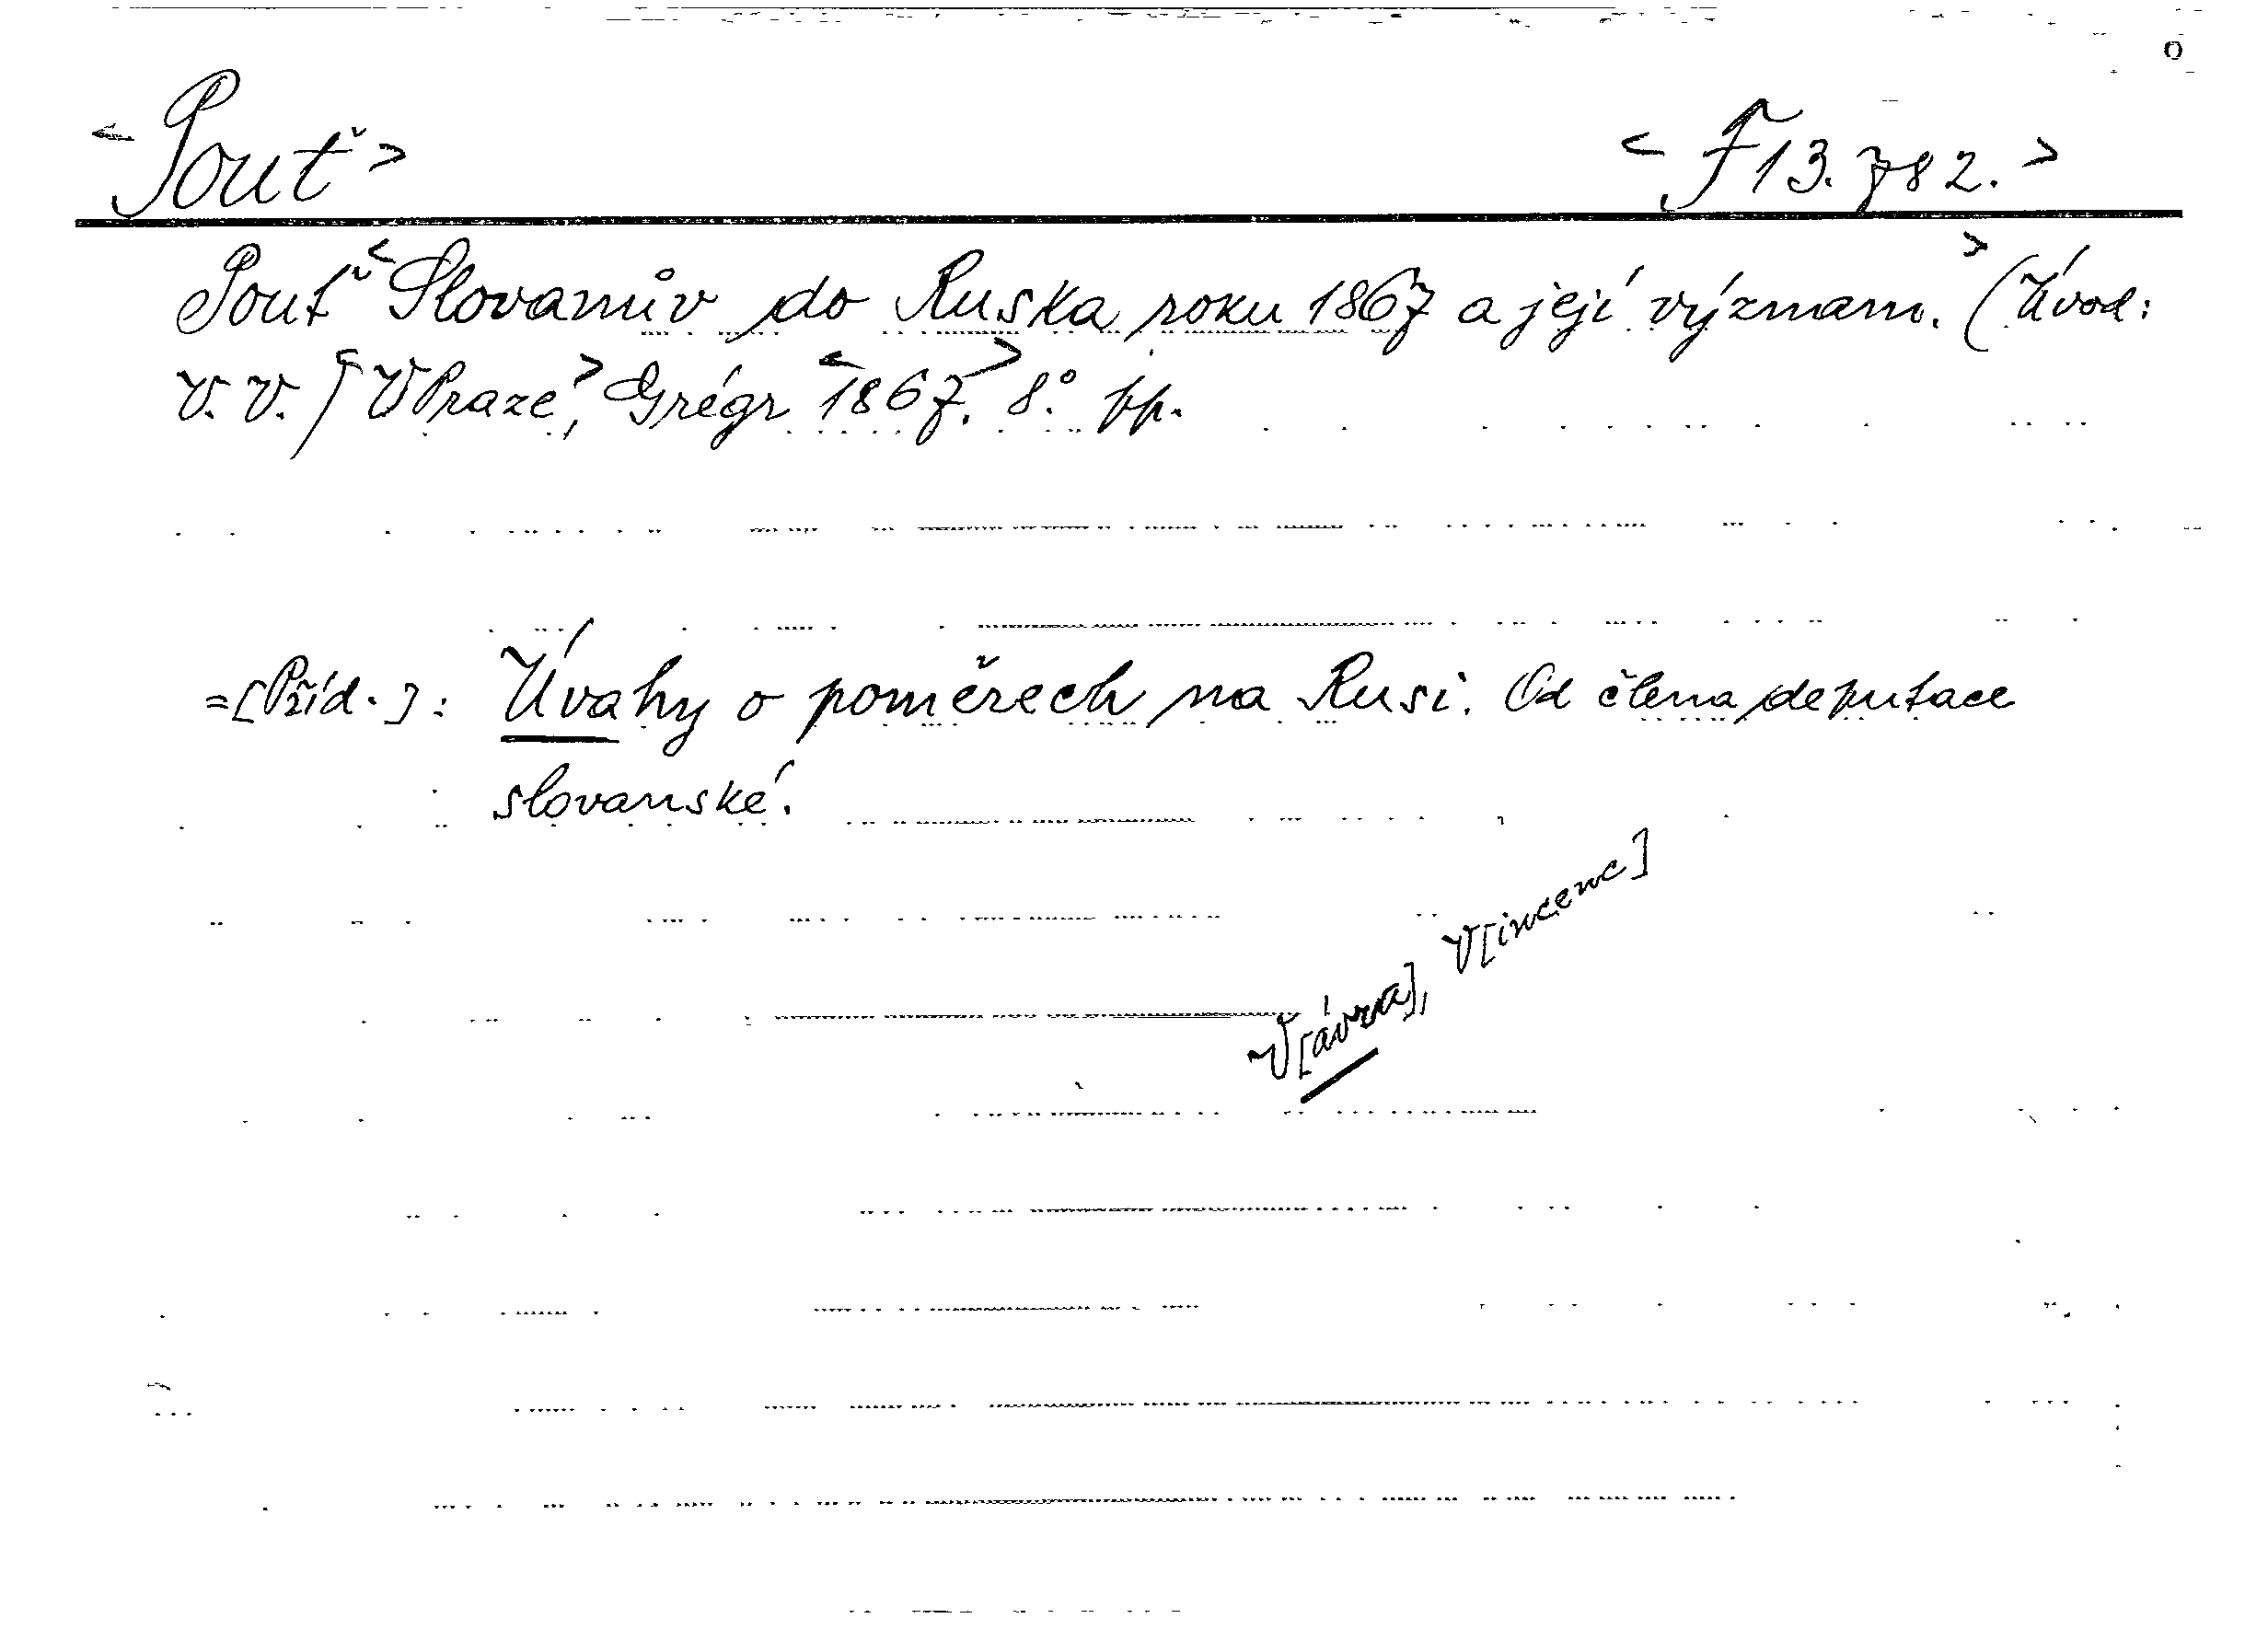 <Pouť>
<F 13.782.>
Pouť <Slovanův do Ruska roku 1867 a její význam.> (Úvod:
V. V.) <V Praze,> Grégr <1867.> 8.° pp.
=[Příd.]: Úvahy o poměrech na Rusi. Od člena deputace
slovanské.
V[ávra], V[incenc]